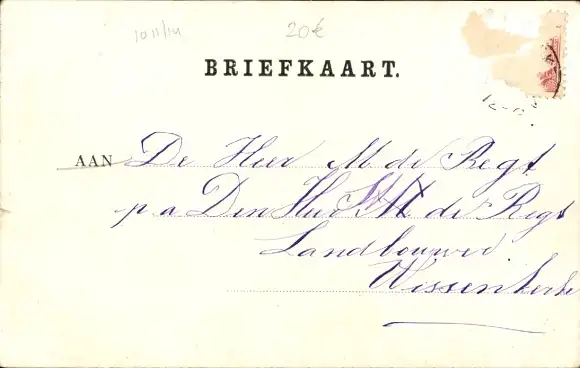 20€
BRIEFKAART.
AAN De Heer M de Regt
p a Den Heer M de Regt
Landbouwer
Wissenkerke